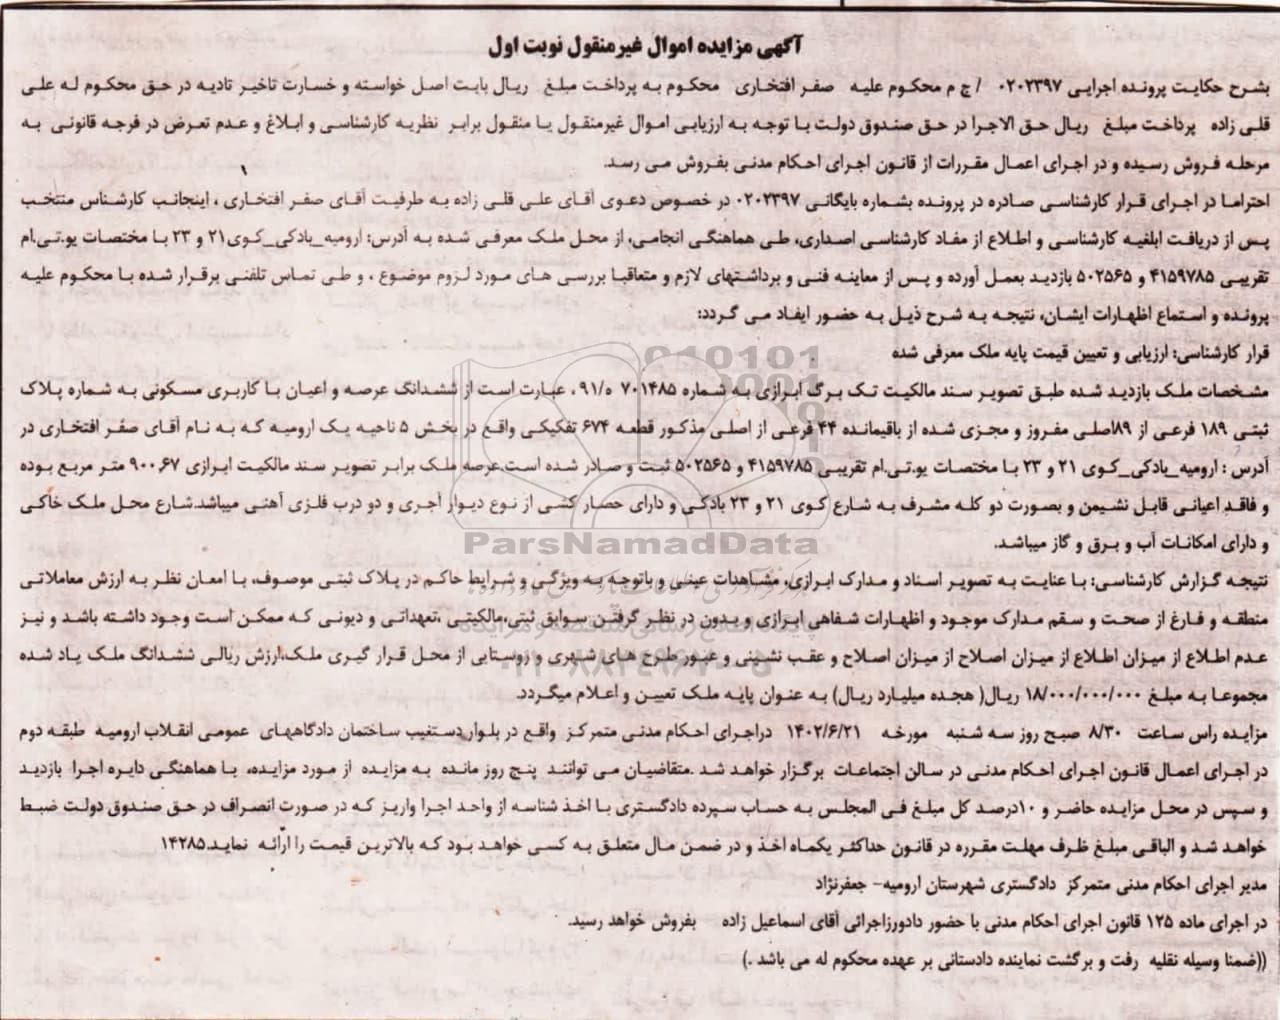 آگهی مزایده اموال غیرمنقول نوبت اول
بشرح حکایت پرونده اجرایی ۰۲۰۲۳۹۷ / ج م محکوم علیه صفر افتخاری محکوم به پرداخت مبلغ ریال بابت اصل خواسته و خسارت تاخیر تادیه در حق محکوم له علی
قلی زاده پرداخت مبلغ ریال حق الاجرا در حق صندوق دولت با توجه به ارزیابی اموال غیرمنقول یا منقول برابر نظریه کارشناسی و ابلاغ و عدم تعرض در فرجه قانونی به
مرحله فروش رسیده و در اجرای اعمال مقررات از قانون اجرای احکام مدنی بفروش می رسد.
احتراما در اجرای قرار کارشناسی صادره در پرونده بشماره بایگانی ۰۲۰۲۳۹۷ در خصوص دعوی آقای علی قلی زاده به طرفیت آقای صفر افتخاری ، اینجانب کارشناس منتخب
پس از دریافت ابلغیه کارشناسی و اطلاع از مفاد کارشناسی اصداری، طی هماهنگی انجامی، از محل ملک معرفی شده به آدرس: ارومیه_بادکی_کوی۲۱ و ۲۳ با مختصات یو.تی.ام
تقریبی ۴۱۵۹۷۸۵ و ۵۰۲۵۶۵ بازدید بعمل آورده و پس از معاینه فنی و برداشتهای لازم و متعاقبا بررسی های مورد لزوم موضوع ، و طی تماس تلفنی برقرار شده با محکوم علیه
پرونده و استماع اظهارات ایشان، نتیجه به شرح ذیل به حضور ایفاد می گردد:
قرار کارشناسی: ارزیابی و تعیین قیمت پایه ملک معرفی شده
مشخصات ملک بازدید شده طبق تصویر سند مالکیت تک برگ ابرازی به شماره ۷۰۱۴۸۵ ه/۹۱ ، عبارت است از ششدانگ عرصه و اعیان با کاربری مسکونی به شماره پلاک
ثبتی ۱۸۹ فرعی از ۱۸۹صلی مفروز و مجزی شده از باقیمانده ۴۴ فرعی از اصلی مذکور قطعه ۶۷۴ تفکیکی واقع در بخش ۵ ناحیه یک ارومیه که به نام آقای صفر افتخاری در
آدرس : ارومیه_بادکی_کوی ۲۱ و ۲۳ با مختصات یو.تی.ام تقریبی ۴۱۵۹۷۸۵ و ۵۰۲۵۶۵ ثبت و صادر شده است.عرصه ملک برابر تصویر سند مالکیت ابرازی ۹۰۰,۶۷ متر مربع بوده
و فاقد اعیانی قابل نشیمن و بصورت دو کله مشرف به شارع کوی ۲۱ و ۲۳ بادکی و دارای حصار کشی از نوع دیوار آجری و دو درب فلزی آهنی میباشد.شارع محل ملک خاکی
و دارای امکانات آب و برق و گاز میباشد.
نتیجه گزارش کارشناسی: با عنایت به تصویر اسناد و مدارک ابرازی، مشاهدات عینی و باتوجه به ویژگی و شرایط حاکم در پلاک ثبتی موصوف، با امعان نظر به ارزش معاملاتی
منطقه و فارغ از صحت و سقم مدارک موجود و اظهارات شفاهی ابرازی و بدون در نظر گرفتن سوابق ثبتی،مالکیتی ،تعهداتی و دیونی که ممکن است وجود داشته باشد و نیز
عدم اطلاع از میزان اطلاع از میزان اصلاح از میزان اصلاح و عقب نشینی و عبور طرح های شهری و روستایی از محل قرار گیری ملک،ارزش ریالی ششدانگ ملک یاد شده
مجموعا به مبلغ ۱۸/۰۰۰/۰۰۰/۰۰۰ ریال( هجده میلیارد ریال) به عنوان پایه ملک تعیین و اعلام میگردد.
مزایده راس ساعت ۸/۳۰ صبح روز سه شنبه مورخه ۱۴۰۲/۶/۲۱ دراجرای احکام مدنی متمرکز واقع در بلوار دستغیب ساختمان دادگاههای عمومی انقلاب ارومیه طبقه دوم
در اجرای اعمال قانون اجرای احکام مدنی در سالن اجتماعات برگزار خواهد شد .متقاضیان می توانند پنج روز مانده به مزایده از مورد مزایده، با هماهنگی دایره اجرا بازدید
و سپس در محل مزایده حاضر و ۱۰درصد کل مبلغ فی المجلس به حساب سپرده دادگستری با اخذ شناسه از واحد اجرا واریز که در صورت انصراف در حق صندوق دولت ضبط
خواهد شد و الباقی مبلغ ظرف مهلت مقرره در قانون حداکثر یکماه اخذ و در ضمن مال متعلق به کسی خواهد بود که بالاترین قیمت را ارائه نماید.۱۴۲۸۵
مدیر اجرای احکام مدنی متمرکز دادگستری شهرستان ارومیه- جعفرنژاد
در اجرای ماده ۱۲۵ قانون اجرای احکام مدنی با حضور دادورزاجرائی آقای اسماعیل زاده بفروش خواهد رسید.
((ضمنا وسیله نقلیه رفت و برگشت نماینده دادستانی بر عهده محکوم له می باشد .)
ParsNamadData